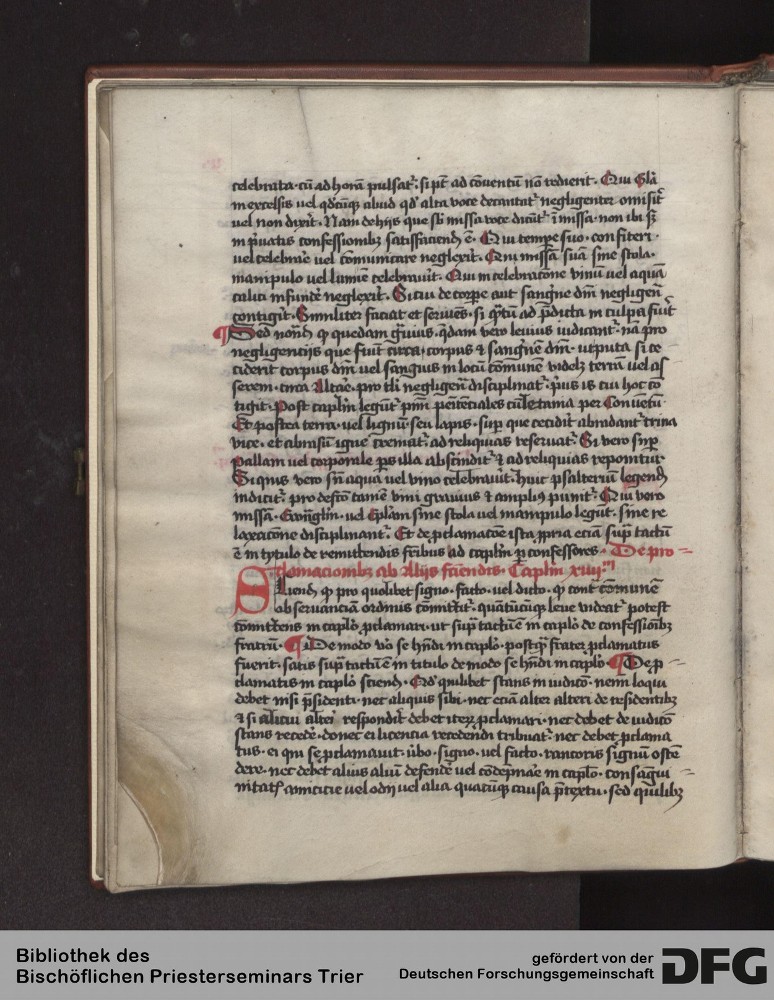 celebrata · cū ad horā pulsat͛ : si pt̄ ad cōventū nō redierit · Qui Gl̄ā
in excelsis vel qdcūq͛ aliud qd' alta voce decantat͛ negligenter omisit͛
vel non dixit͛ · Nam de hijs que sb̄ missa voce dicūt͛ ī missa · non ibi s͛
in p͛vatis confessionibȝ satisfaciend̄ ē · Qui tempe suo · confiteri ·
vel celebra͛e vel cōmunicare neglexit͛ · Qui missā suā sine stola ·
manipulo vel lumīe celebravit͛ · Qui in celebracōne vinū vel aquā
calici infunde͛ neglexit͛ · Si cui de corpe aut sangͥne dn̄i negligen̄
contigit͛ · Similiter faciat et serviēs · si qͣtū ad p͛dicta in culpa fuit͛
¶ Sed notand̄ qͥ quedam gͣvius · qͥdam vero levius iudicant͛ · nā pro
negligencijs que fiūt circa · corpus ⁊ sangͥnē dn̄i · ut puta si ce
ciderit corpus dn̄i vel sanguis in locū cōmunē videlȝ terrā vel cis
serem · circa Altar͛e · pro tli negligen̄ disciplinat͛ · pͥus is cui hoc cō
tigit · Post caplm̄ legūt͛ psmi penitēciales cū letania per Conventū ·
Et postea terra · vel lignū · seu lapis · sup͛ que cecidit abradant͛ trina
vice · et abrasū igne cremat͛ · ad reliquias reservat͛ · Si vero sup͛
pallam vel corporale ps illa abscindit͛ ⁊ ad reliquias reponitur
Si quis vero sn̄ aqua vel vino celebravit͛ · huic psalteriū legend̄
indicit͛ · pro defcōͧ tamē vini gravius ⁊ ampliꝰ punit͛ · Qui vero
missā · Evangliū · vel Eplam sine stola vel manipulo legit͛ · sine re
laxacōne disciplinant͛ · Et de pclamacōe ista ppria eciā sup͛ tactū
ē in tytulo de remittendis frībus ad caplm̄ p͛ confessores · De pro=
clamacionibȝ ab Alijs faciendis · Caplm̄ xiiij
Sciend̄ qͥ pro quolibet signo · facto · vel dicto · qͥ cont͛ cōmunē
observanciā ordinis cōmittit͛ · quātūcūq͛ leve videat͛ potest
comittens in caplo pclamari · ut sup͛ tactū ē in caplo de confessiōibȝ
fratrū · ¶ De modo vo se hn̄di in caplo · postqͣ frater pclamatus
fuerit · satis sup͛ tactū ē in titulo de modo se hn̄di in caplo ¶ De p=
clamatis in caplo sciend̄ · Qd' quilibet stans in iudicō · nemi loqui
debet nisi psidenti · nec aliquis sibi · nec eciā alter alteri de residentibȝ
⁊ si alicui alteri respondit͛ debet iterȝ pclamari · nec debet de iudicō
stans recede͛ · donec ei licencia recedendi tribuat͛ · nec debet pclama
tus · ei qui se pclamavit · v͛bo · signo · vel facto · rancoris signū ostē
dere · nec debet alius aliū defende͛ vel cōdēpna͛e in caplo · consāgui=
nitat͛ amicicie vel odij vel alia quacūq͛ causa p͛textu · sed quilibȝ
Bibliothek des
Bischöflichen Priesterseminars Trier
gefördert von der
Deutschen Forschungsgemeinschaft
DFG